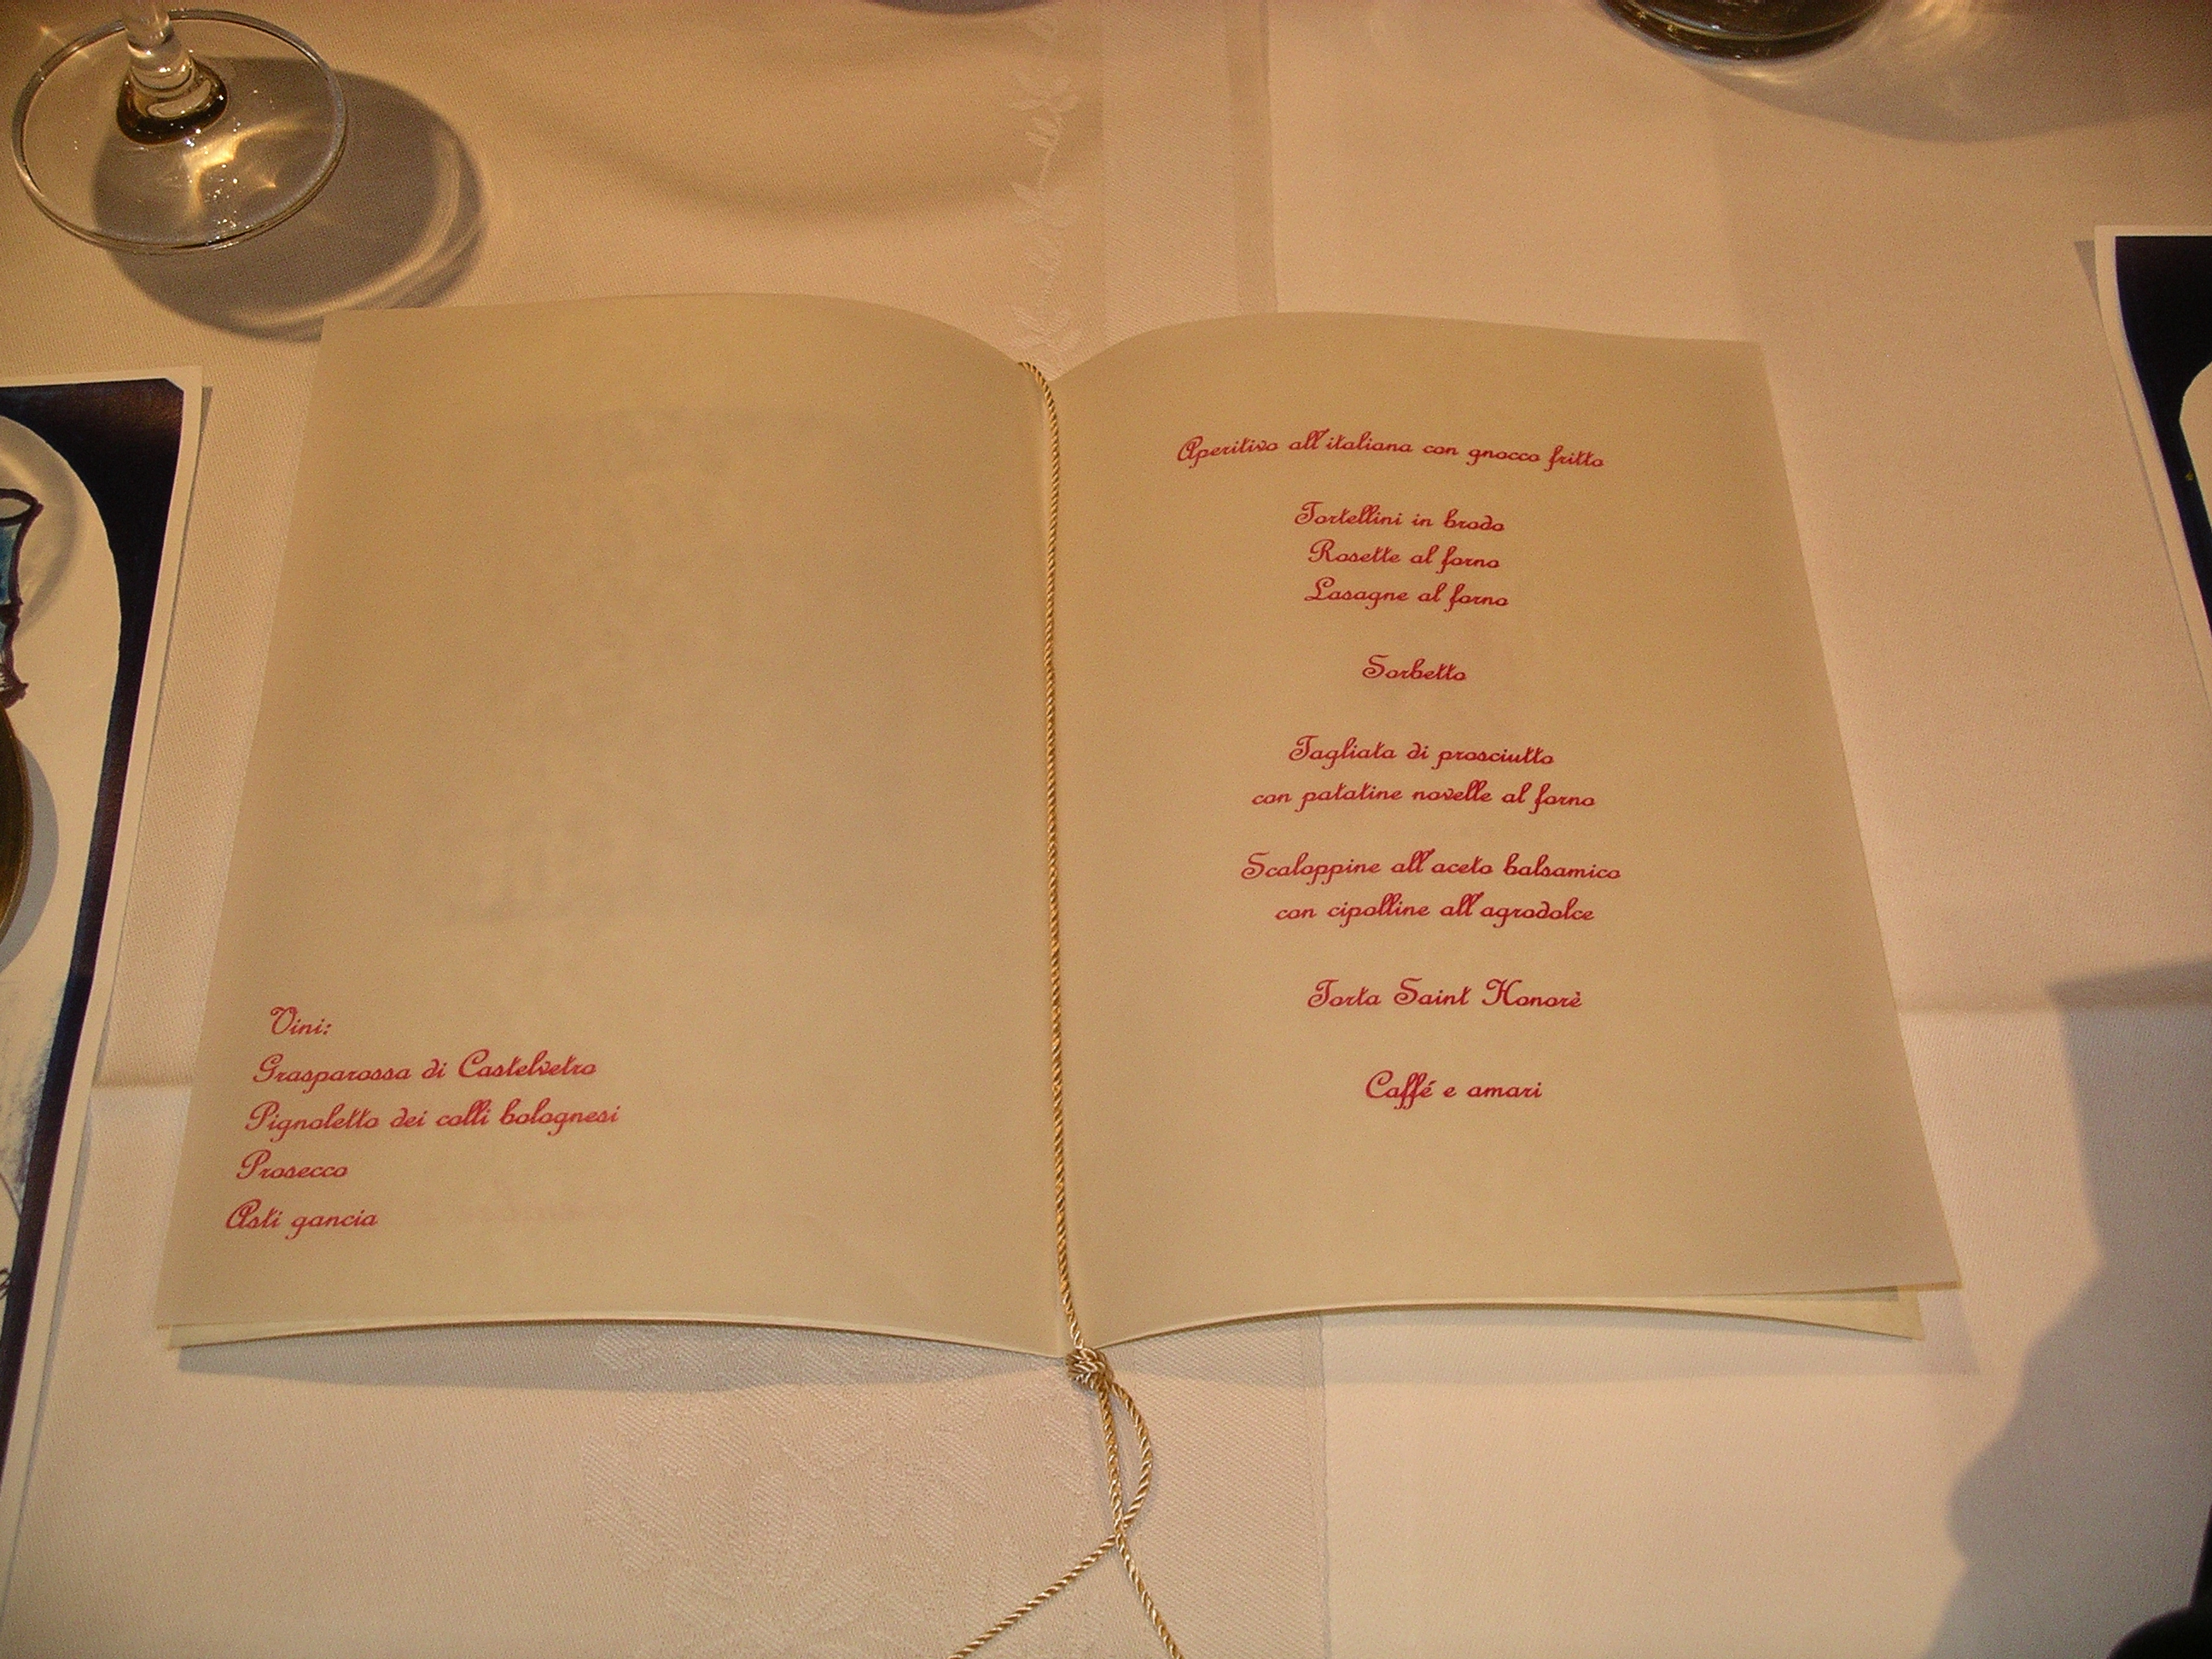 Vini:
Grasparossa di Castelvetro
Pignoletto dei colli bolognesi
Prosecco
Asti gancia
Aperitivo all'italiana con gnocco fritto
Tortellini in brodo
Rosette al forno
Lasagne al forno
Sorbetto
Tagliata di prosciutto
con patatine novelle al forno
Scaloppine all'aceto balsamico
con cipolline all'agrodolce
Torta Saint Honorè
Caffé e amari